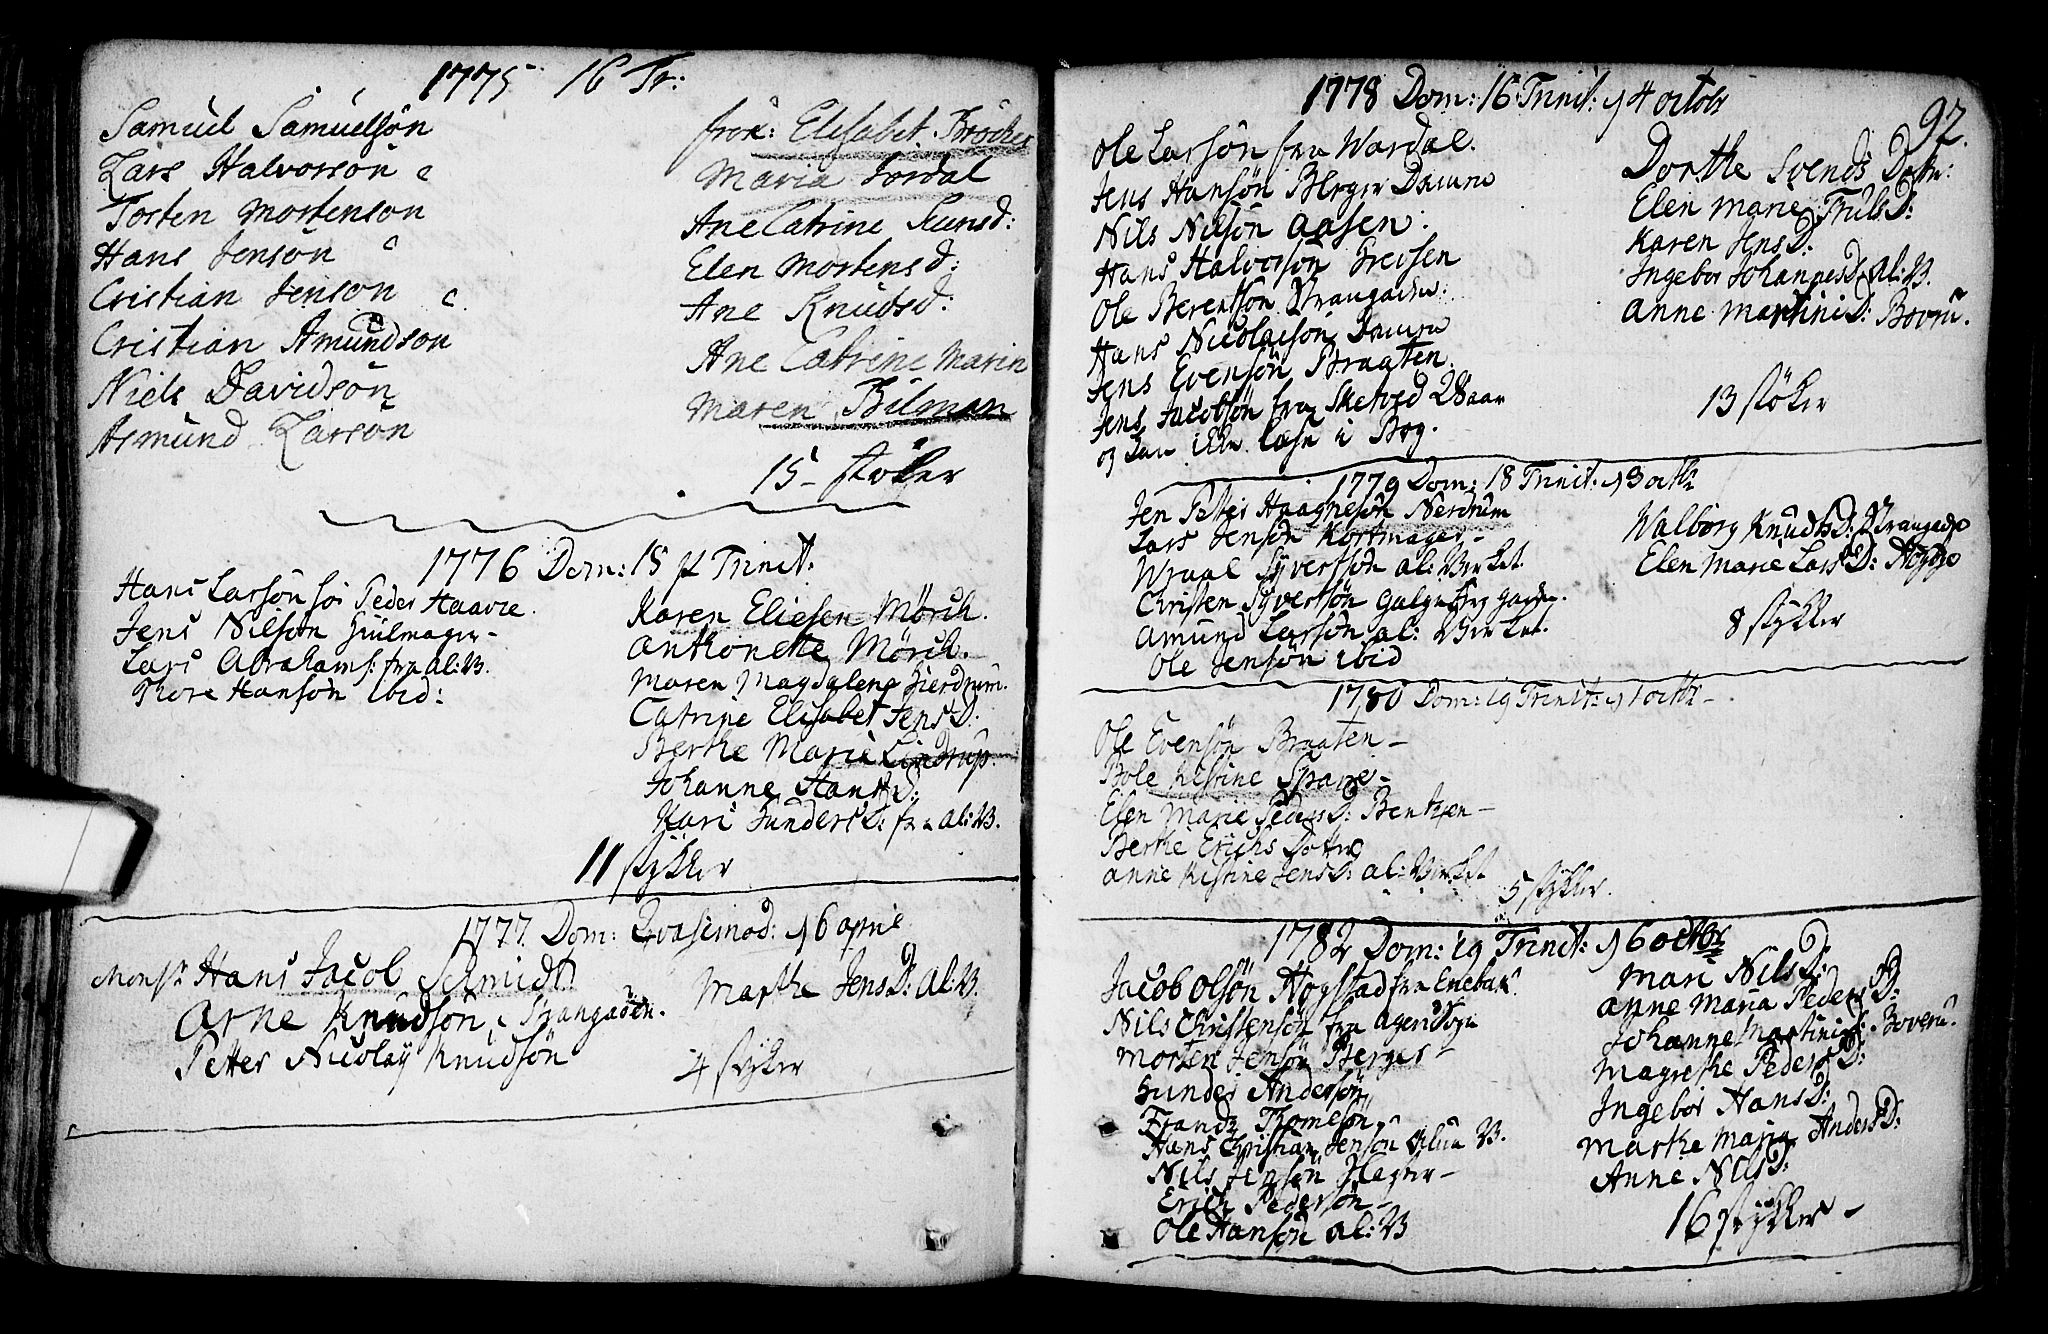 1775 16 Tr:
Samuel Samuelsøn
Lars Halvorsøn c
Torsten Mortenson
Hans Jensøn c
Cristian Jenson c.
Cristian Amundson
Niels Davidsøn
Asmund Larsøn
frøk: Elisabet Brøcher
Maria Jordal
Ane Catrine
Elen Mortensd:
Ane Knudsd:
Ane Catrine Marin
Maren Bilman
15 støker
1776 Dom: 18 p Trinit:
Hans Larsøn Peder Haavre.
Jens Nilsøn Hiulmager-
Lars Abrahams: fra al: V.
Thore Hansøn ibid:
Karen Eliesen Mørch.
Anthonette Mørch.
Maren Magdalena Hierdrum.
Catrine Elisabet JensD.
Berthe Marie Lindrup.
Johanne HansD:
Kari GundersD: fra al: V.
11 stykker
1777 Dom: Qvasimod: d 6 april
Monsr Hans Jacob Schmidt
Arne Knudsøn Vrangaden.
Petter Nicolay Knudsøn
Marthe JensD: al: V.
4 styker
92.
1778 Dom: 16 Trinit: d 4 octobr
Ole Larsøn fra Wardal.
Jens Hansøn Berger Damm
Nils Nilsøn Aasen:
Hans Halversøn Grevsen
Ole Berentsøn Vrangaden:
Hans Nicolaisøn Damm
Jens Evensøn Braaten
Jens Jacobsøn fra Sketved 28 aar
og kan ikke læse i Bog.
Dorthe Svends Dotter:
Elen Marie TrulsD:
Karen JensD:
Ingebor JohannesD al: V.
Anne MartiniD: Boveru.
13 støker
1779 Dom: 18 Trinit: d 3 octbr
Jen Peter Haagnesøn Nerdrum
Lars Jensøn Kortmager-
Wraal Syvertsøn al: Verket.
Christen Syvertsøn Galgeberg gaden.
Amund Larsøn al: Verket.
Ole Jensøn ibid
Walborg KnudsD: Vrangade
Elen Marie LarsD:
8 stykker
1780 Dom: 19 Trinit: d 1 octbr -
Ole Evensøn Braaten -
Bole Kistine Sparre-
Elen Marie PedersD: Bentzen -
Berthe Erichs Dotter
Anne Kistine JensD: al: Verket
5 stykker.
1782 Dom: 19 Trinit: d 6 octbr
Jacob Olsøn Høgstad fra Enebak.
Nils Christensøn fra Agers Sogn
Morten Jensøn Berger -
Gunder Andersøn
Frandz Thomesøn
Hans Christian Jensøn Alun V.
Nils Jensøn Slegter -
Erich Pedersøn -
Ole Hansøn al: V
Mari NilsD:
Anne Maria PedersD:
Johanne MartiniD: Boveru.
Magrethe PedersD:
Ingebor HansD:
Marthe Maria AndersD:
Anne NilsD:
16 stykker -